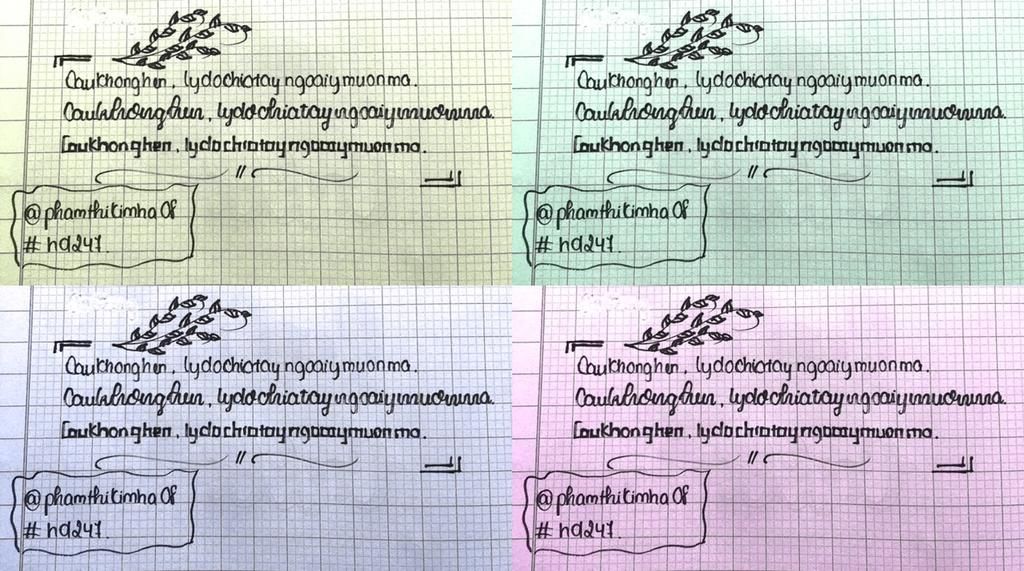 Caukhonghen, lydochiatayngoaiymuonma.
Caukhonghen, lydochiatayngoaiymuonma.
Caukhonghen, lydochiatayngoaiymuonma.
@phamthikimha08
#hd247.
Caukhonghen, lydochiatayngoaiymuonma.
Caukhonghen, lydochiatayngoaiymuonma.
Caukhonghen, lydochiatayngoaiymuonma.
@phamthikimha08
#hd247.
Caukhonghen, lydochiatayngoaiymuonma.
Caukhonghen, lydochiatayngoaiymuonma.
Caukhonghen, lydochiatayngoaiymuonma.
@phamthikimha08
#hd247.
Caukhonghen, lydochiatayngoaiymuonma.
Caukhonghen, lydochiatayngoaiymuonma.
Caukhonghen, lydochiatayngoaiymuonma.
@phamthikimha08
#hd247.